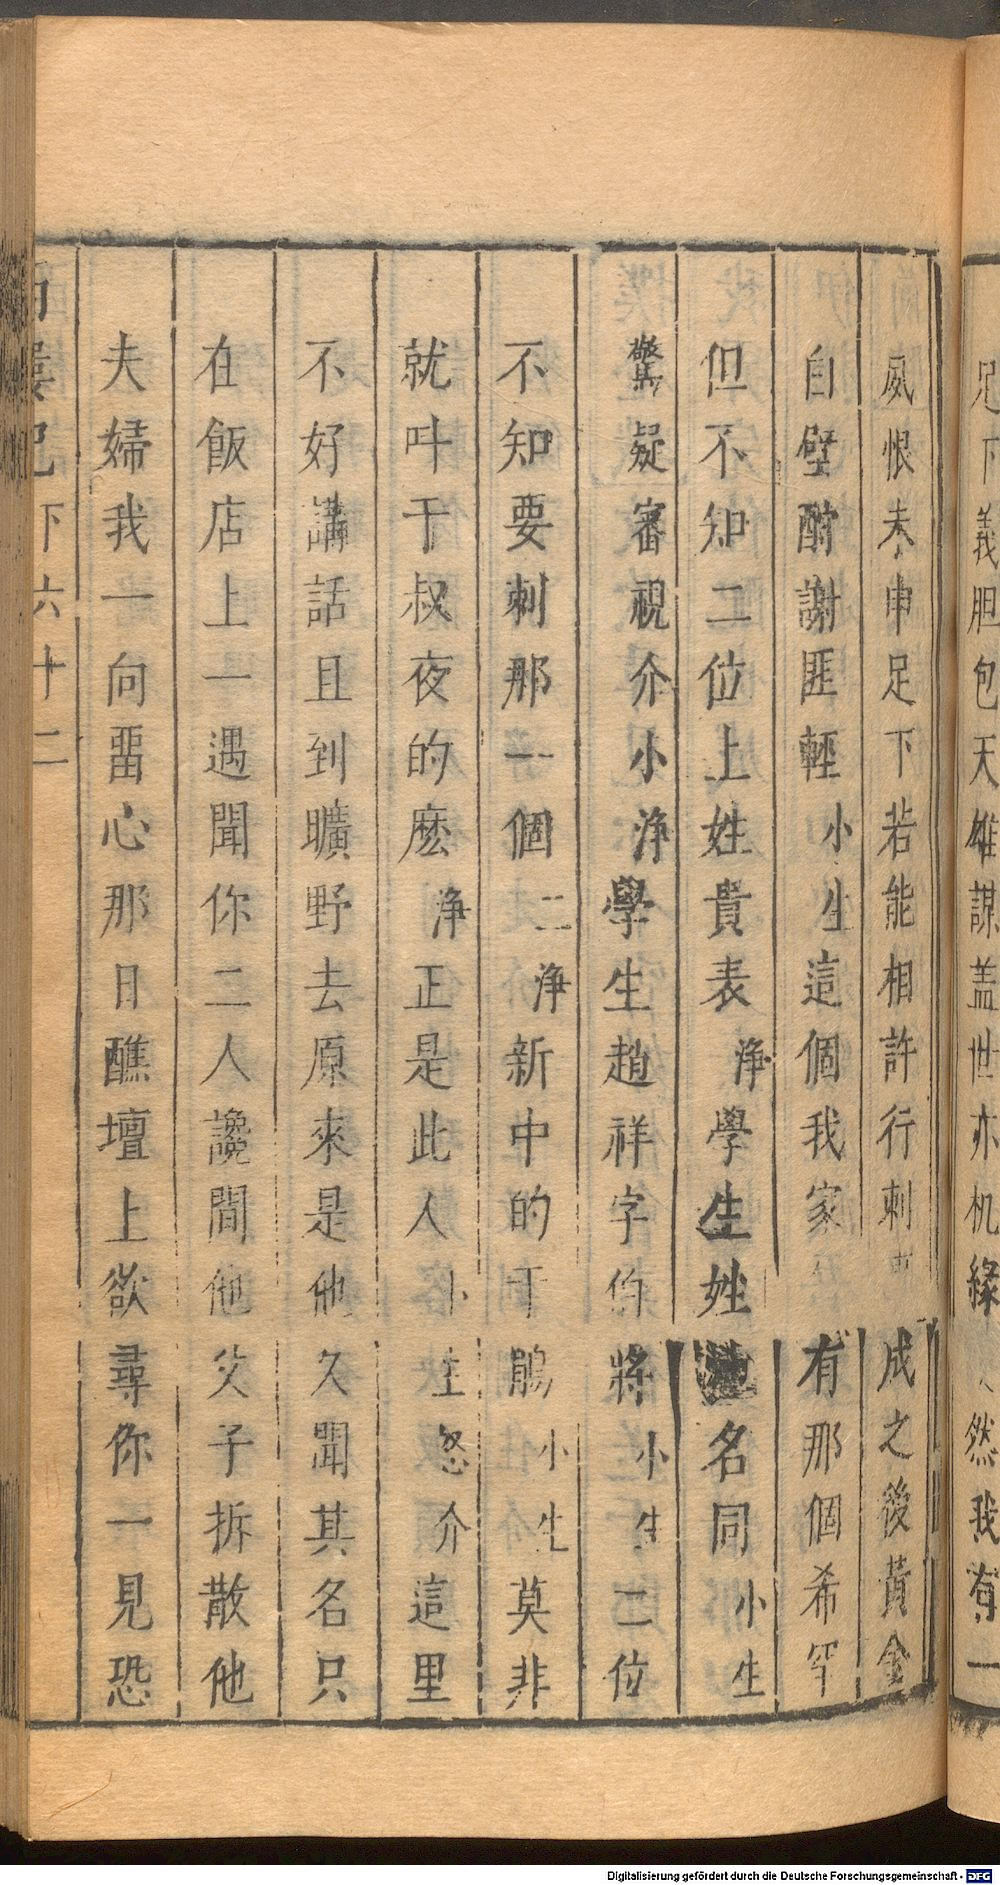 足下義胆包天雄謀盖世亦机緣 然我有一
威恨未申足下若能相許行刺 成之後黃金
白璧酧謝匪輕小生這個我家 有那個希罕
但不知二位上姓貴表淨學生姓 名同小生
驚疑審視介小淨學生趙祥字伯將小生二位
不知要刺那一個二淨新中的于鵑小生莫非
就叶于叔夜的麽淨正是此人小生怒介這里
不好講話且到曠野去原來是他久聞其名只
在飯店上一遇聞你二人讒間他父子拆散他
夫婦我一向畱心那日醮壇上欲尋你一見恐
西樓記下六十二
Digitalisierung gefördert durch die Deutsche Forschungsgemeinschaft - DFG